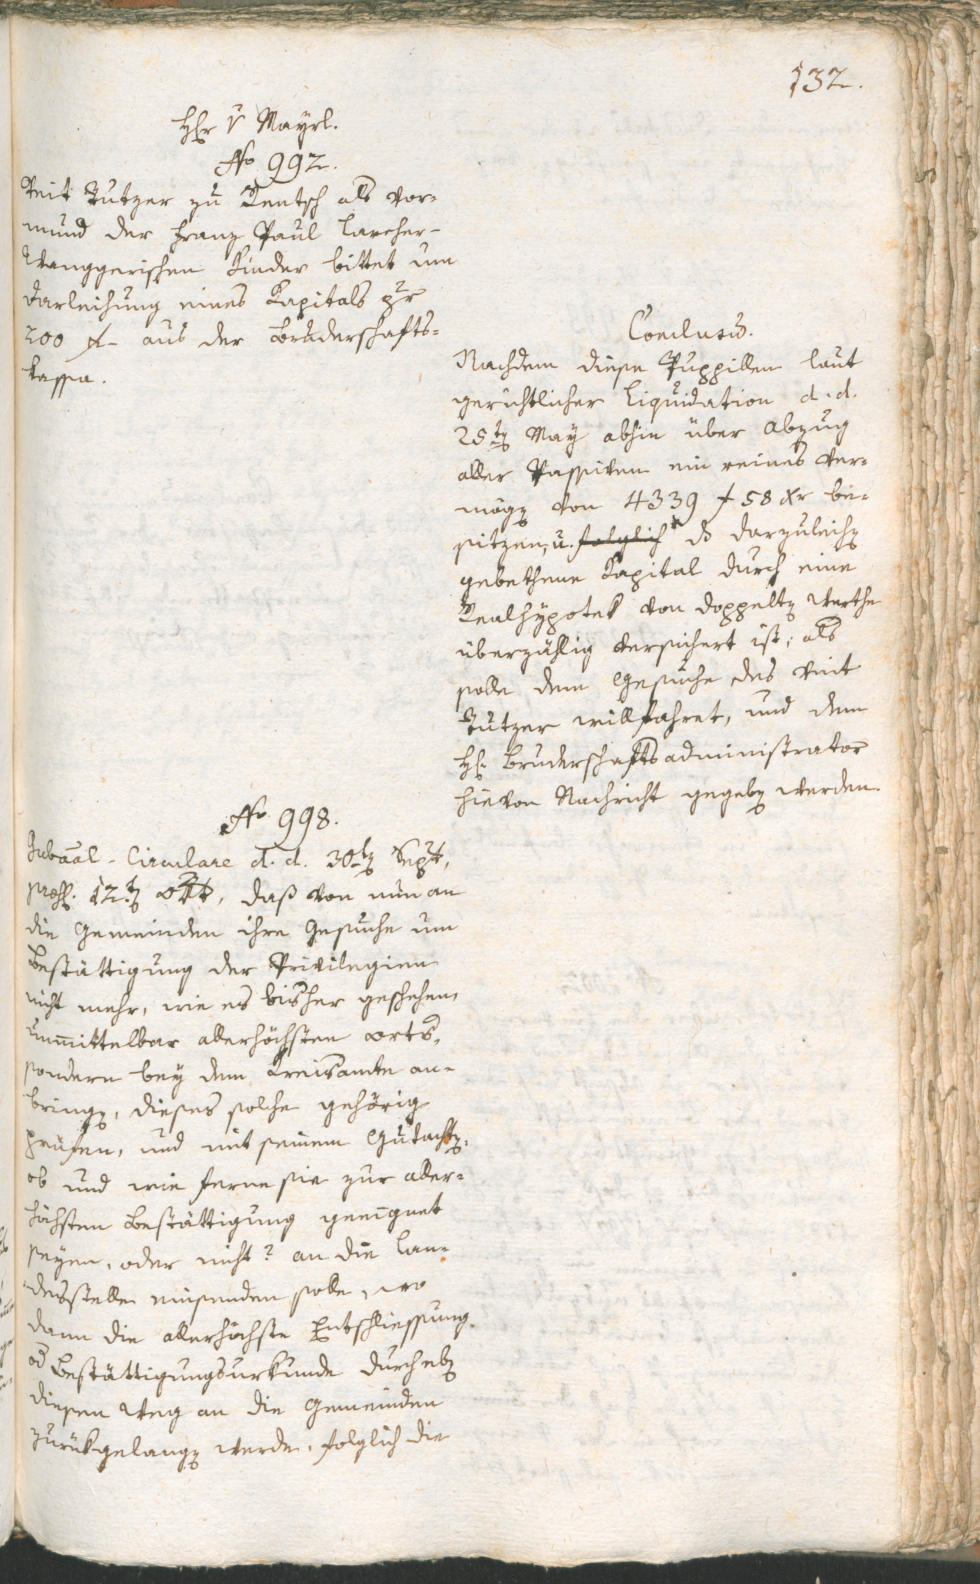 132.
H̄r v̄ Mayrl.
No 992.
Veit Tutzer zu Rentsch als Vor-
mund der Franz Paul Larcher-
Wanggerischen Kinder bittet um
Darleihung eines Kapitals pr
200 f- aus der Bruderschafts-
kassa.
Conclusū.
Nachdem diese Puppillen laut
gerichtlicher Liquidation d. d.
25tn May abhin über Abzug
aller Passiven ein reines Ver-
mögn von 4339 f 58 xr be-
sitzen, u. folglich ds darzuleihn
gebethene Kapital durch eine
Realhypotek von doppeltn Werthe
überzählig versichert ist; als
solle dem Gesuche des Veit
Tutzer willfahret, und dem
H: Bruderschaftsadministrator
hievon Nachricht gegebn werden.
No 998.
Gubaāl-Circulare d. d. 30tn Sept,
praes. 12tn 8br, daß von nun an
die Gemeinden ihre Gesuche um
Bestättigung der Privilegien
nicht mehr, wie es bisher geschehen,
unmittelbar allerhöchsten Orts,
sondern bey dem Kreisamte an-
bringn, dieses solche gehörig
prüfen, und mit seinem Gutachtn,
ob und wie ferne sie zur aller-
höchsten Bestättigung geeignet
seyen, oder nicht? an die Lan-
desstelle einsenden solle, wo
dann die allerhöchste Entschliessung
od Bestättigungsurkunde durch ebn
diesen Weg an die Gemeinden
zurükgelangn werde, folglich die